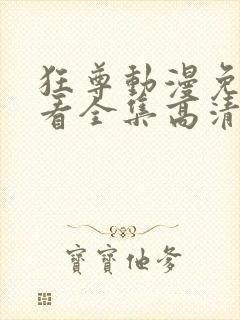 狂尊動漫免
看全集高清
寶寶他爹